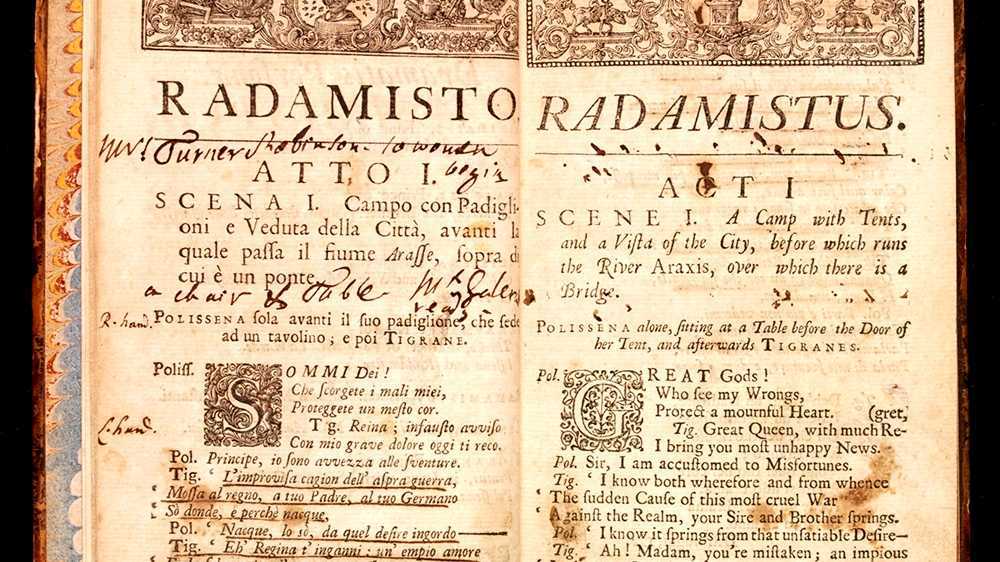 RADAMISTO
Mrs. Turner Robinson to women
begin
ATTO I.
SCENA I. Campo con Padigli-
oni e Veduta della Città, avanti la
quale paſſa il fiume Araſſe, ſopra di
cui è un ponte.
a chair & Table
ready
R. hand.
POLISSENA ſola avanti il ſuo padiglione, che ſede
ad un tavolino; e poi TIGRANE.
Poliſſ. SOMMI Dei!
Che ſcorgete i mali miei,
Proteggete un meſto cor.
Tig. Reina; infauſto avviſo
L. hand.
Con mio grave dolore oggi ti reco.
Pol. Principe, io ſono avvezza alle ſventure.
Tig. ‘ L'improviſa cagion dell' aſpra guerra,
‘ Moſſa al regno, a tuo Padre, al tuo Germano
‘ Sò donde, e perchè nacque,
Pol. ‘ Nacque, lo sò, da quel deſire ingordo——
Tig. ‘ Eh' Regina t'inganni: un' empio amore
RADAMISTUS.
ACT I
SCENE I. A Camp with Tents,
and a Viſta of the City, before which runs
the River Araxis, over which there is a
Bridge.
POLISSENA alone, ſitting at a Table before the Door of
her Tent, and afterwards TIGRANES.
Pol. GREAT Gods!
Who ſee my Wrongs,
Protect a mournful Heart. (gret,
Tig. Great Queen, with much Re-
I bring you moſt unhappy News.
Pol. Sir, I am accuſtomed to Misfortunes.
Tig. ‘ I know both wherefore and from whence
‘ The ſudden Cauſe of this moſt cruel War
‘ Againſt the Realm, your Sire and Brother ſprings.
Pol. ‘ I know it ſprings from that unſatiable Deſire—
Tig. ‘ Ah! Madam, you're miſtaken; an impious